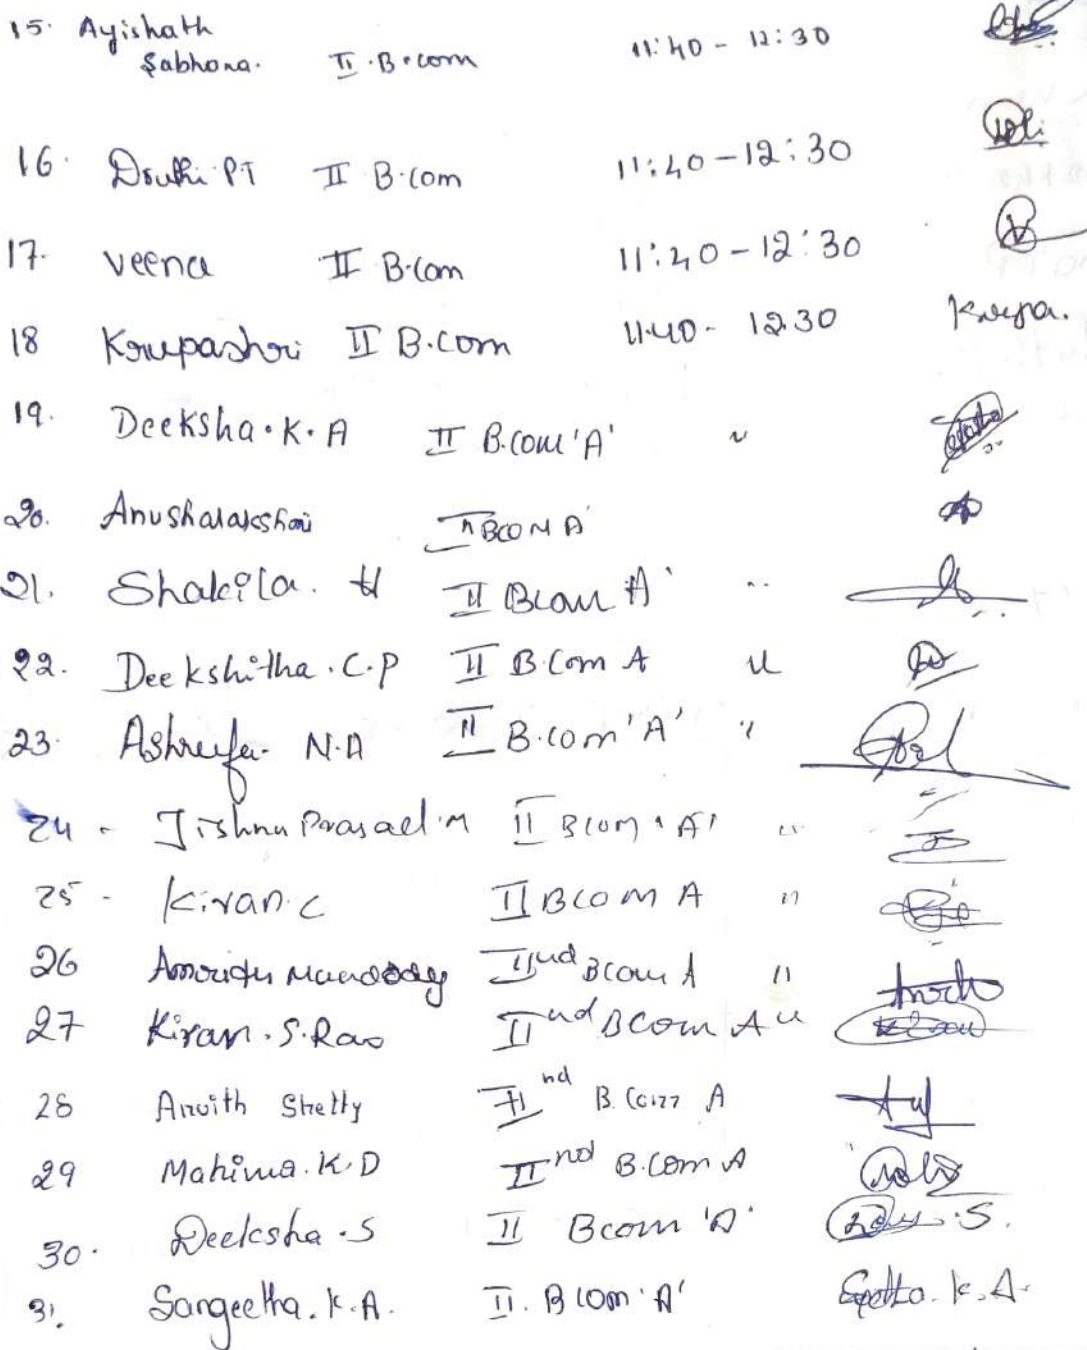 15. Ayishath
Sabhona. II B.com 11:40 - 12:30
16. Druthi PT II B.com 11:40 - 12:30
17. Veena II B.com 11:40 - 12:30
18 Krupashri II B.com 11.40 - 12.30 Krupa.
19. Deeksha.K.A II B.com 'A' "
20. Anusha II BCOM A
21. Shakila. H II Bcom A "
22. Deekshitha.C.P II B.Com A "
23. N.A II B.com 'A' "
24 - Jishnu Prasad.M II Bcom 'A' "
25 - Kiran.C II BCOM A "
26 II nd Bcom A "
27 Kiran.S.Rao II nd Bcom A "
28 Anvith Shetty II nd B.Com A
29 Mahima.K.D II nd B.com A
30. Deeksha.S II Bcom 'A' S.
31. Sangeetha.K.A. II. Bcom 'A' K.A.